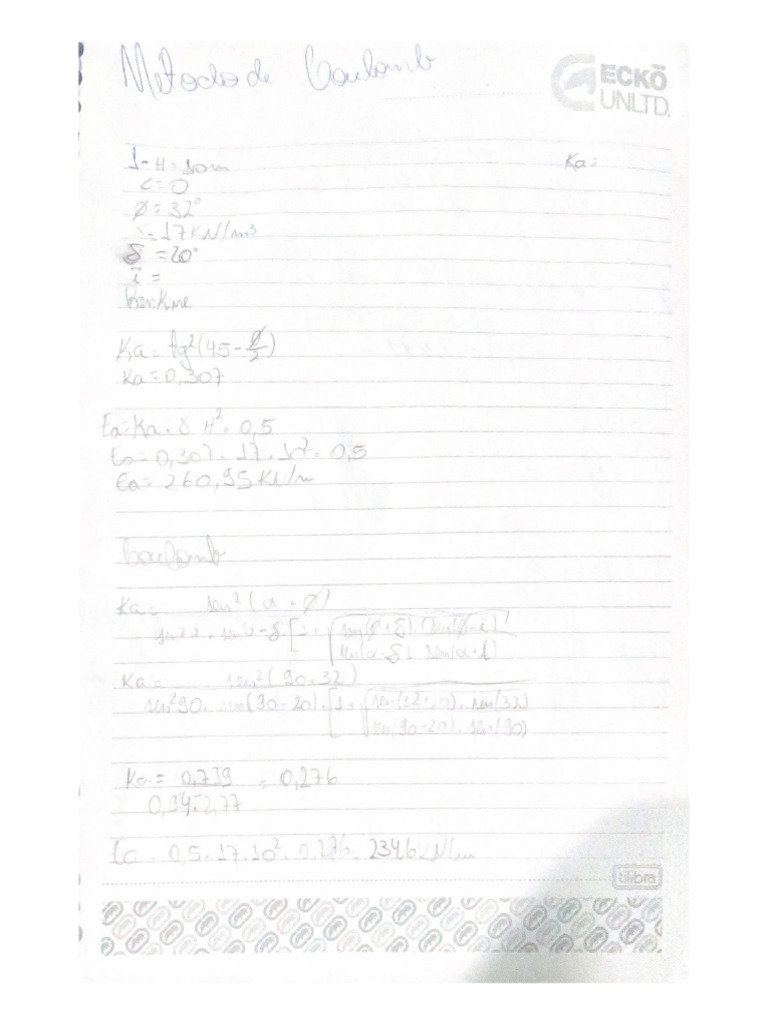 Metodo de Coulomb
ECKŌ
UNLTD.
1- H = 10m
Ka =
c = 0
ø = 32°
γ = 17 KN/m³
δ = 20°
i =
Rankine
Ka = tg²(45 - ø/2)
Ka = 0,307
Ea = Ka . γ H² . 0,5
Ea = 0,307 . 17 . 10² . 0,5
Ea = 260,95 KN/m
Coulomb
Ka = sen²(α + ø)
sen²α . sen α - δ . [1 + √ sen(ø + δ) . sen(ø - i)
sen(α - δ) . sen(α + i)
Ka = sen²(90 + 32)
sen²90 . sen(90 - 20) . [1 + √ sen(32 + 20) . sen(32)
sen(90 - 20) . sen(90)
Ka = 0,719 = 0,276
0,94 . 2,77
Ea = 0,5 . 17 . 10² . 0,276 = 234,6 KN/m
tilibra